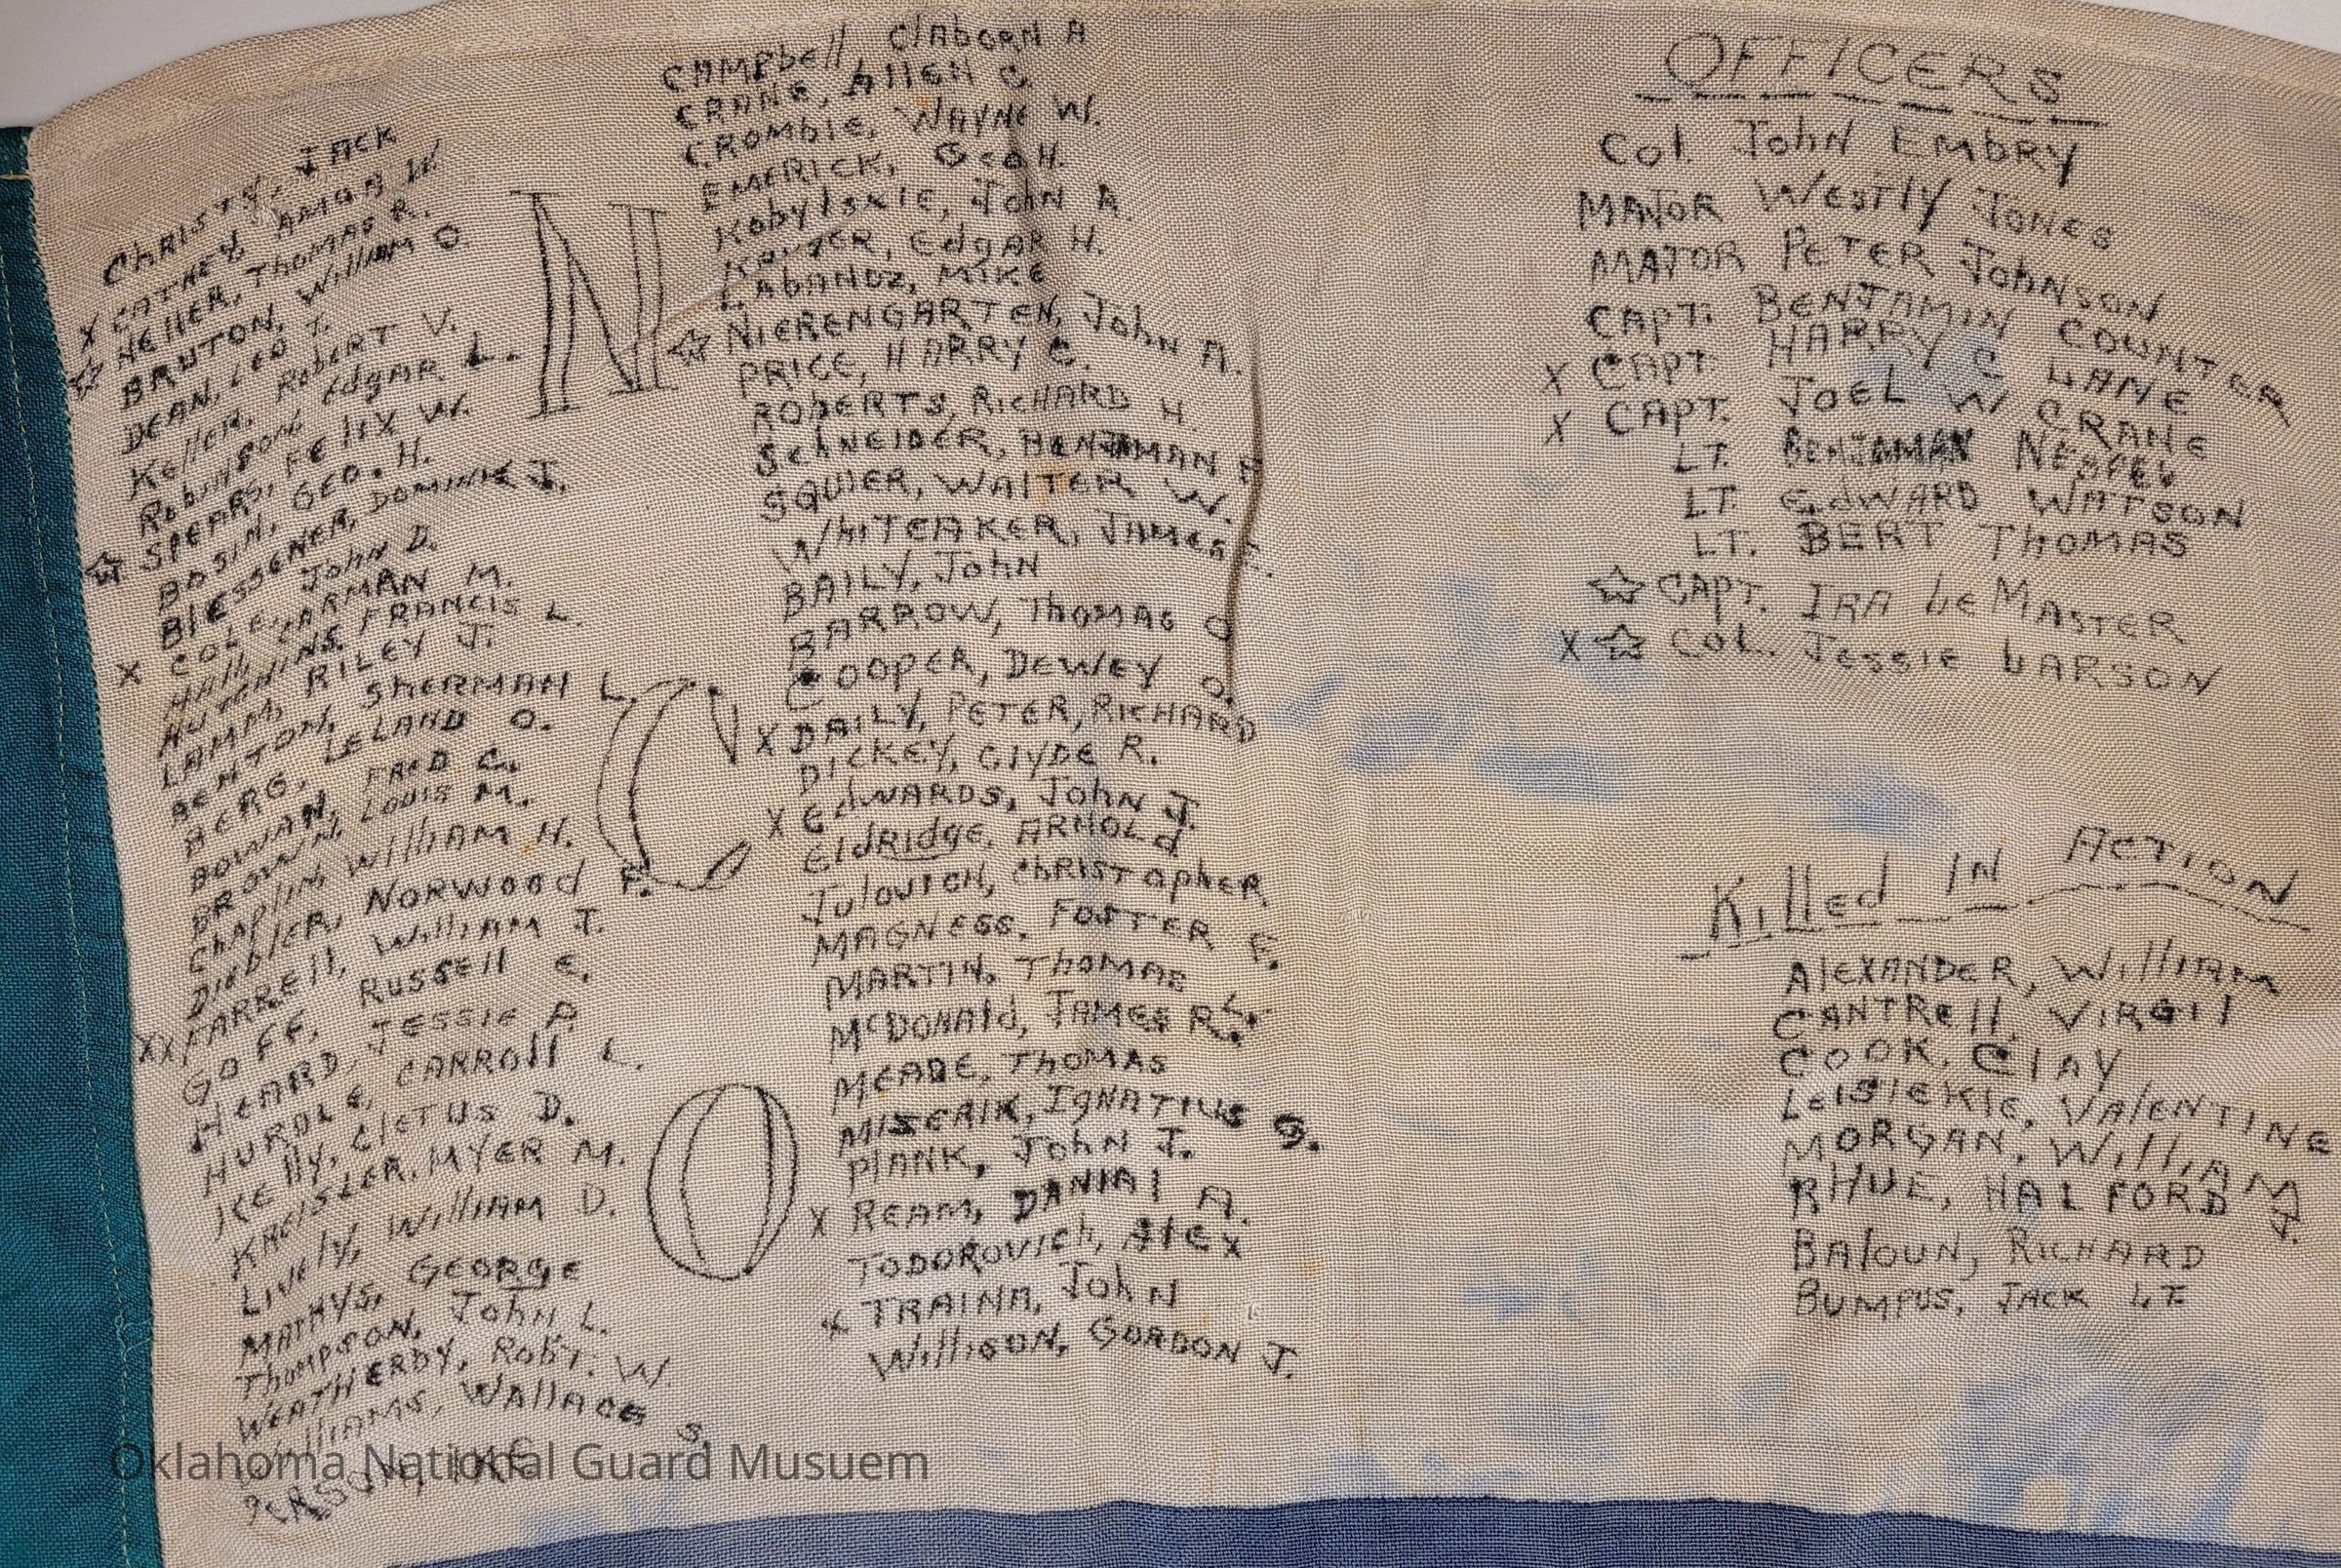 Christy, Jack
X Cathey, Amos W.
☆ Heller, Thomas R.
Bruton, William O.
Dean, Leo T.
Keller, Robert V.
Robinson Edgar L.
☆ Spears, Felix W.
Basin, Geo. H.
Blessener, Dominik J.
X Cole, John D.
Hall, Arman M.
Hutchins, Francis L.
Lamm, Riley J.
Benton, Sherman L.
Berg, Leland O.
Bowan, Fred C.
Brown, Louis M.
Chaplin, William H.
Diebler, Norwood F.
XX Farrell, William J.
Goff, Russell E.
Heard, Jessie A.
Hurdle, Carroll L.
Kelly, Cletus D.
Kreisler, Myer M.
Lively, William D.
Mathys, George
Thompson, John L.
Weatherby, Robt. W.
Williams, Wallace S.
N
C
O
Campbell, Claborn A
Crane, Allen C.
Crombie, Wayne W.
Emerick, Geo H.
Kobylskie, John A
Edgar H.
Labanoz, Mike
☆ Nierengarten, John A.
Price, Harry C.
Roberts, Richard H.
Schneider, Benjman F
Squier, Walter W.
Whiteaker, James E.
Baily, John
Barrow, Thomas O
Cooper, Dewey O.
X Daily, Peter, Richard
Dickey, Clyde R.
X Edwards, John J.
Eldridge, Arnold
Julovich, Christopher
Magness, Foster E.
Martin, Thomas L.
McDonald, James R.
Meade, Thomas
Miserik, Ignatius S.
Plank, John J.
X Ream, Danial A.
Todorovich, Alex
X Traina, John
Willison, Gordon J.
OFFICERS
Col. John Embry
Major Westly Jones
Major Peter Johnson
Capt. Benjamin Counter
X Capt. Harry C Lane
X Capt. Joel W Crane
Lt. Benjaman
Lt. Edward Watson
Lt. Bert Thomas
☆ Capt. Ira LeMaster
X ☆ Col. Jessie Larson
Killed in Action
Alexander, William
Cantrell, Virgil
Cook, Clay
Leisiekie, Valentine
Morgan, William
Rhue, Halford J.
Baloun, Richard
Bumpus, Jack Lt
Oklahoma National Guard Musuem